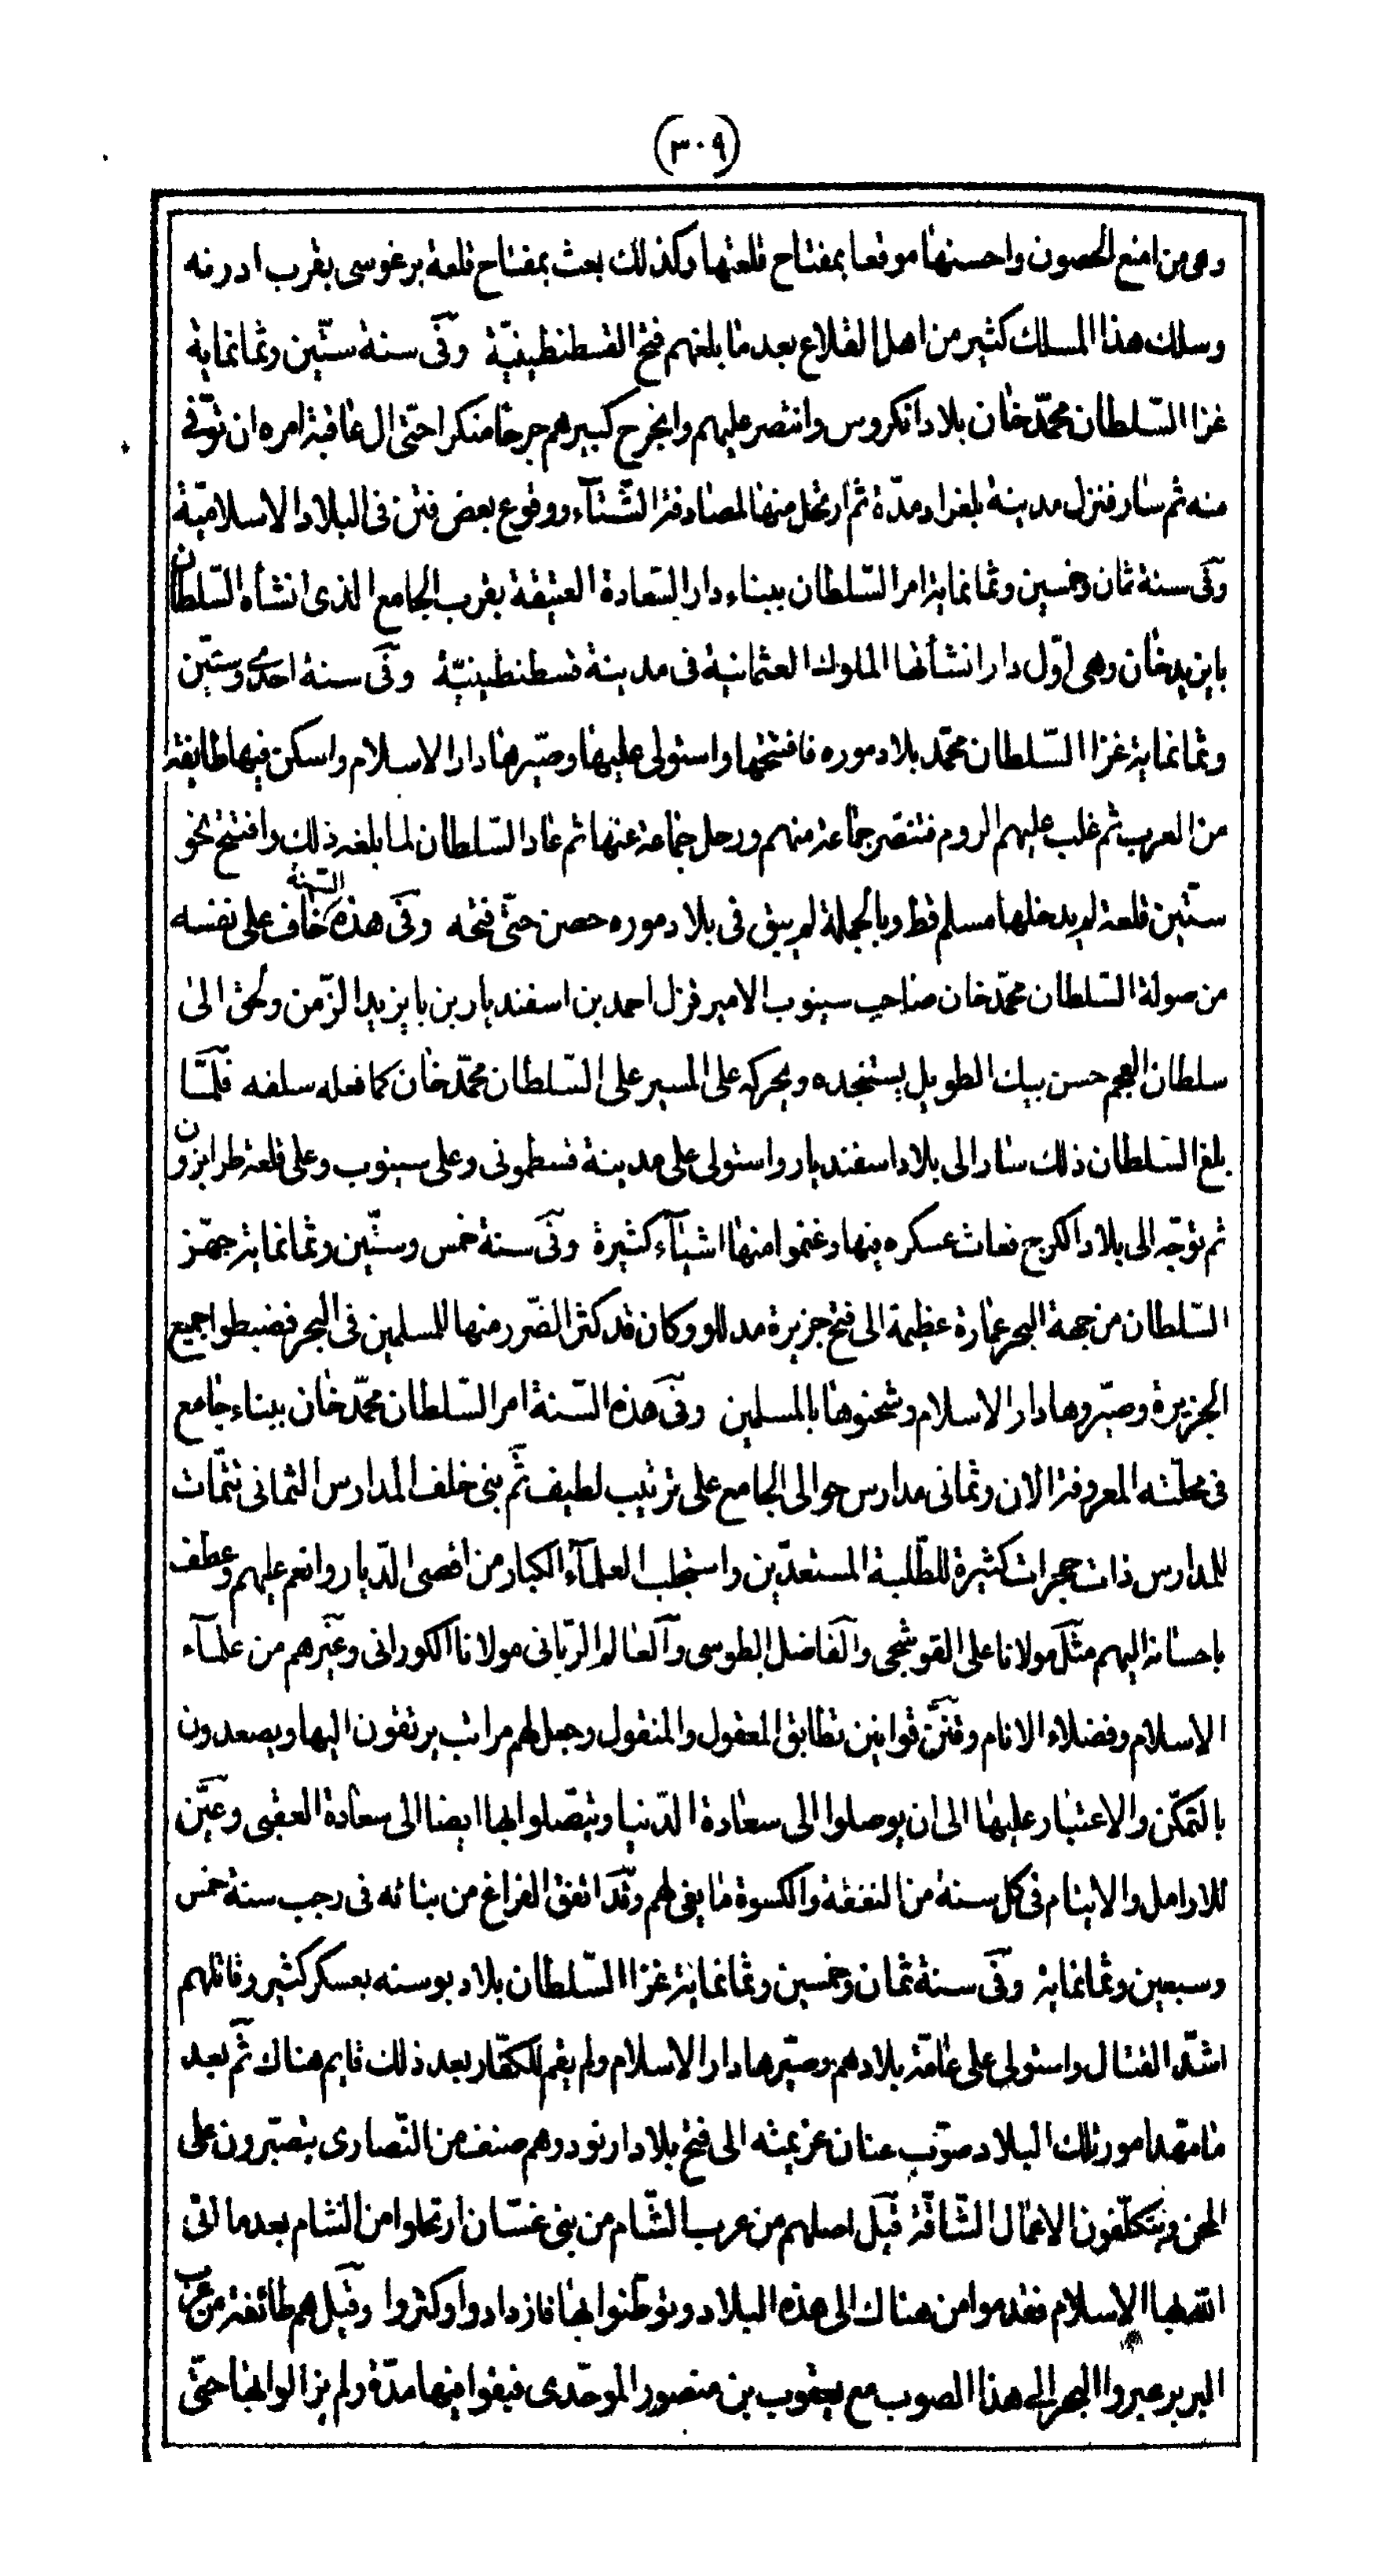 (٣٠٩)
وهى من امنع الحصون واحسنها موقعا بمفتاح قلعتها وكذلك بعث بمفتاح قلعة برغوسى بقرب ادرنه
وسلك هذا المسلك كثير من اهل القلاع بعد ما بلغهم فتح القسطنطينيّة وفى سنة ستّين وثمانماية
غزا السّلطان محمّد خان بلاد انكروس وانتصر عليهم وانجرح كبيرهم جرحا منكرا حتّى ال عاقبة امره ان توّفى
منه ثم سار فنزل مدينة بلغراد مدّة ثم ارتحل منها لمصادفة الشّتآء ووقوع بعض فتن فى البلاد الاسلاميّة
وفى سنة ثمان وخمسين وثمانماية امر السّلطان ببناء دار السّعادة العتيقة بقرب الجامع الذى انشأه السّلطان
بايزيد خان وهى اوّل دار انشأتها الملوك العثمانية فى مدينة قسطنطينيّة وفى سنة احدى وستّين
وثمانماية غزا السّلطان محمّد بلاد موره فافتتحها واستولى عليها وصيّرها دار الاسلام واسكن فيها طايفة
من العرب ثم غلب عليهم الروم فتنصّر جماعة منهم ورحل جماعة عنها ثم عاد السّلطان لما بلغه ذلك وافتتح نحو
ستّين قلعة لم يدخلها مسلم قط وبالجملة لم يبق فى بلاد موره حصن حتّى فتحه وفى هذه السّنة خاف على نفسه
من صولة السّلطان محمّد خان صاحب سينوب الامير قزل احمد بن اسفنديار بن بايزيد الزّمن ولحق الى
سلطان العجم حسن بيك الطويل يستنجده ويحركه على المسير على السّلطان محمّد خان كما فعله سلفه فلمّا
بلغ السّلطان ذلك سار الى بلاد اسفنديار واستولى على مدينة قسطمونى وعلى سينوب وعلى قلعة طرابزون
ثم توجّه الى بلاد الكرج فعاث عسكره فيها وغنموا منها اشيآء كثيرة وفى سنة خمس وستّين وثمانماية جهّز
السّلطان من جهة البحر عمارة عظيمة الى فتح جزيرة مدللو وكان قد كثر الضّرر منها للمسلمين فى البحر فضبطوا جميع
الجزيرة وصيّروها دار الاسلام وشحنوها بالمسلمين وفى هذه السّنة امر السّلطان محمّد خان ببناء جامع
فى محلّته المعروفة الان وثمانى مدارس حوالى الجامع على ترتيب لطيف ثمّ بنى خلف المدارس الثمانى تتمّات
للمدارس ذات حجرات كثيرة للطّلبة المستعدّين واستجلب العلمآء الكبار من اقصى الدّيار وانعم عليهم وعطف
باحسانه اليهم مثل مولانا على القوشجى والفاضل الطوسى والعالم الرّبانى مولانا الكورانى وغيرهم من علمآء
الاسلام وفضلاء الانام وقنّن قوانين تطابق المعقول والمنقول وجعل لهم مراتب يرتقون اليها ويصعدون
بالتمكّن والاعتبار عليها الى ان يوصلوا الى سعادة الدّنيا ويتّصلوا بها ايضا الى سعادة العقبى وعيّن
للارامل والايتام فى كل سنة من النفقة والكسوة ما يفى لهم وقد اتفق الفراغ من بنائه فى رجب سنة خمس
وسبعين وثمانماية وفى سنة ثمان وخمسين وثمانماية غزا السّلطان بلاد بوسنه بعسكر كثير وقاتلهم
اشدّ القتال واستولى على عامّة بلادهم وصيّرها دار الاسلام ولم يقم للكفّار بعد ذلك قايم هناك ثمّ بعد
ما مهّد امور تلك البلاد صوّب عنان عزيمته الى فتح بلاد ارنود وهم صنف من النّصارى يتصبّرون على
المحن ويتكلّفون الاعمال الشّاقّة قيل اصلهم من عرب الشّام من بنى غسّان ارتحلوا من الشام بعد ما اتى
الله بالاسلام فقدموا من هناك الى هذه البلاد وتوطّنوا بها فازدادوا وكثروا وقيل هم طائفة من عرب
البربر عبروا البحر الى هذا الصوب مع يعقوب بن منصور الموحّدى فبقوا فيها مدّة ولم يزالوا بها حتّى